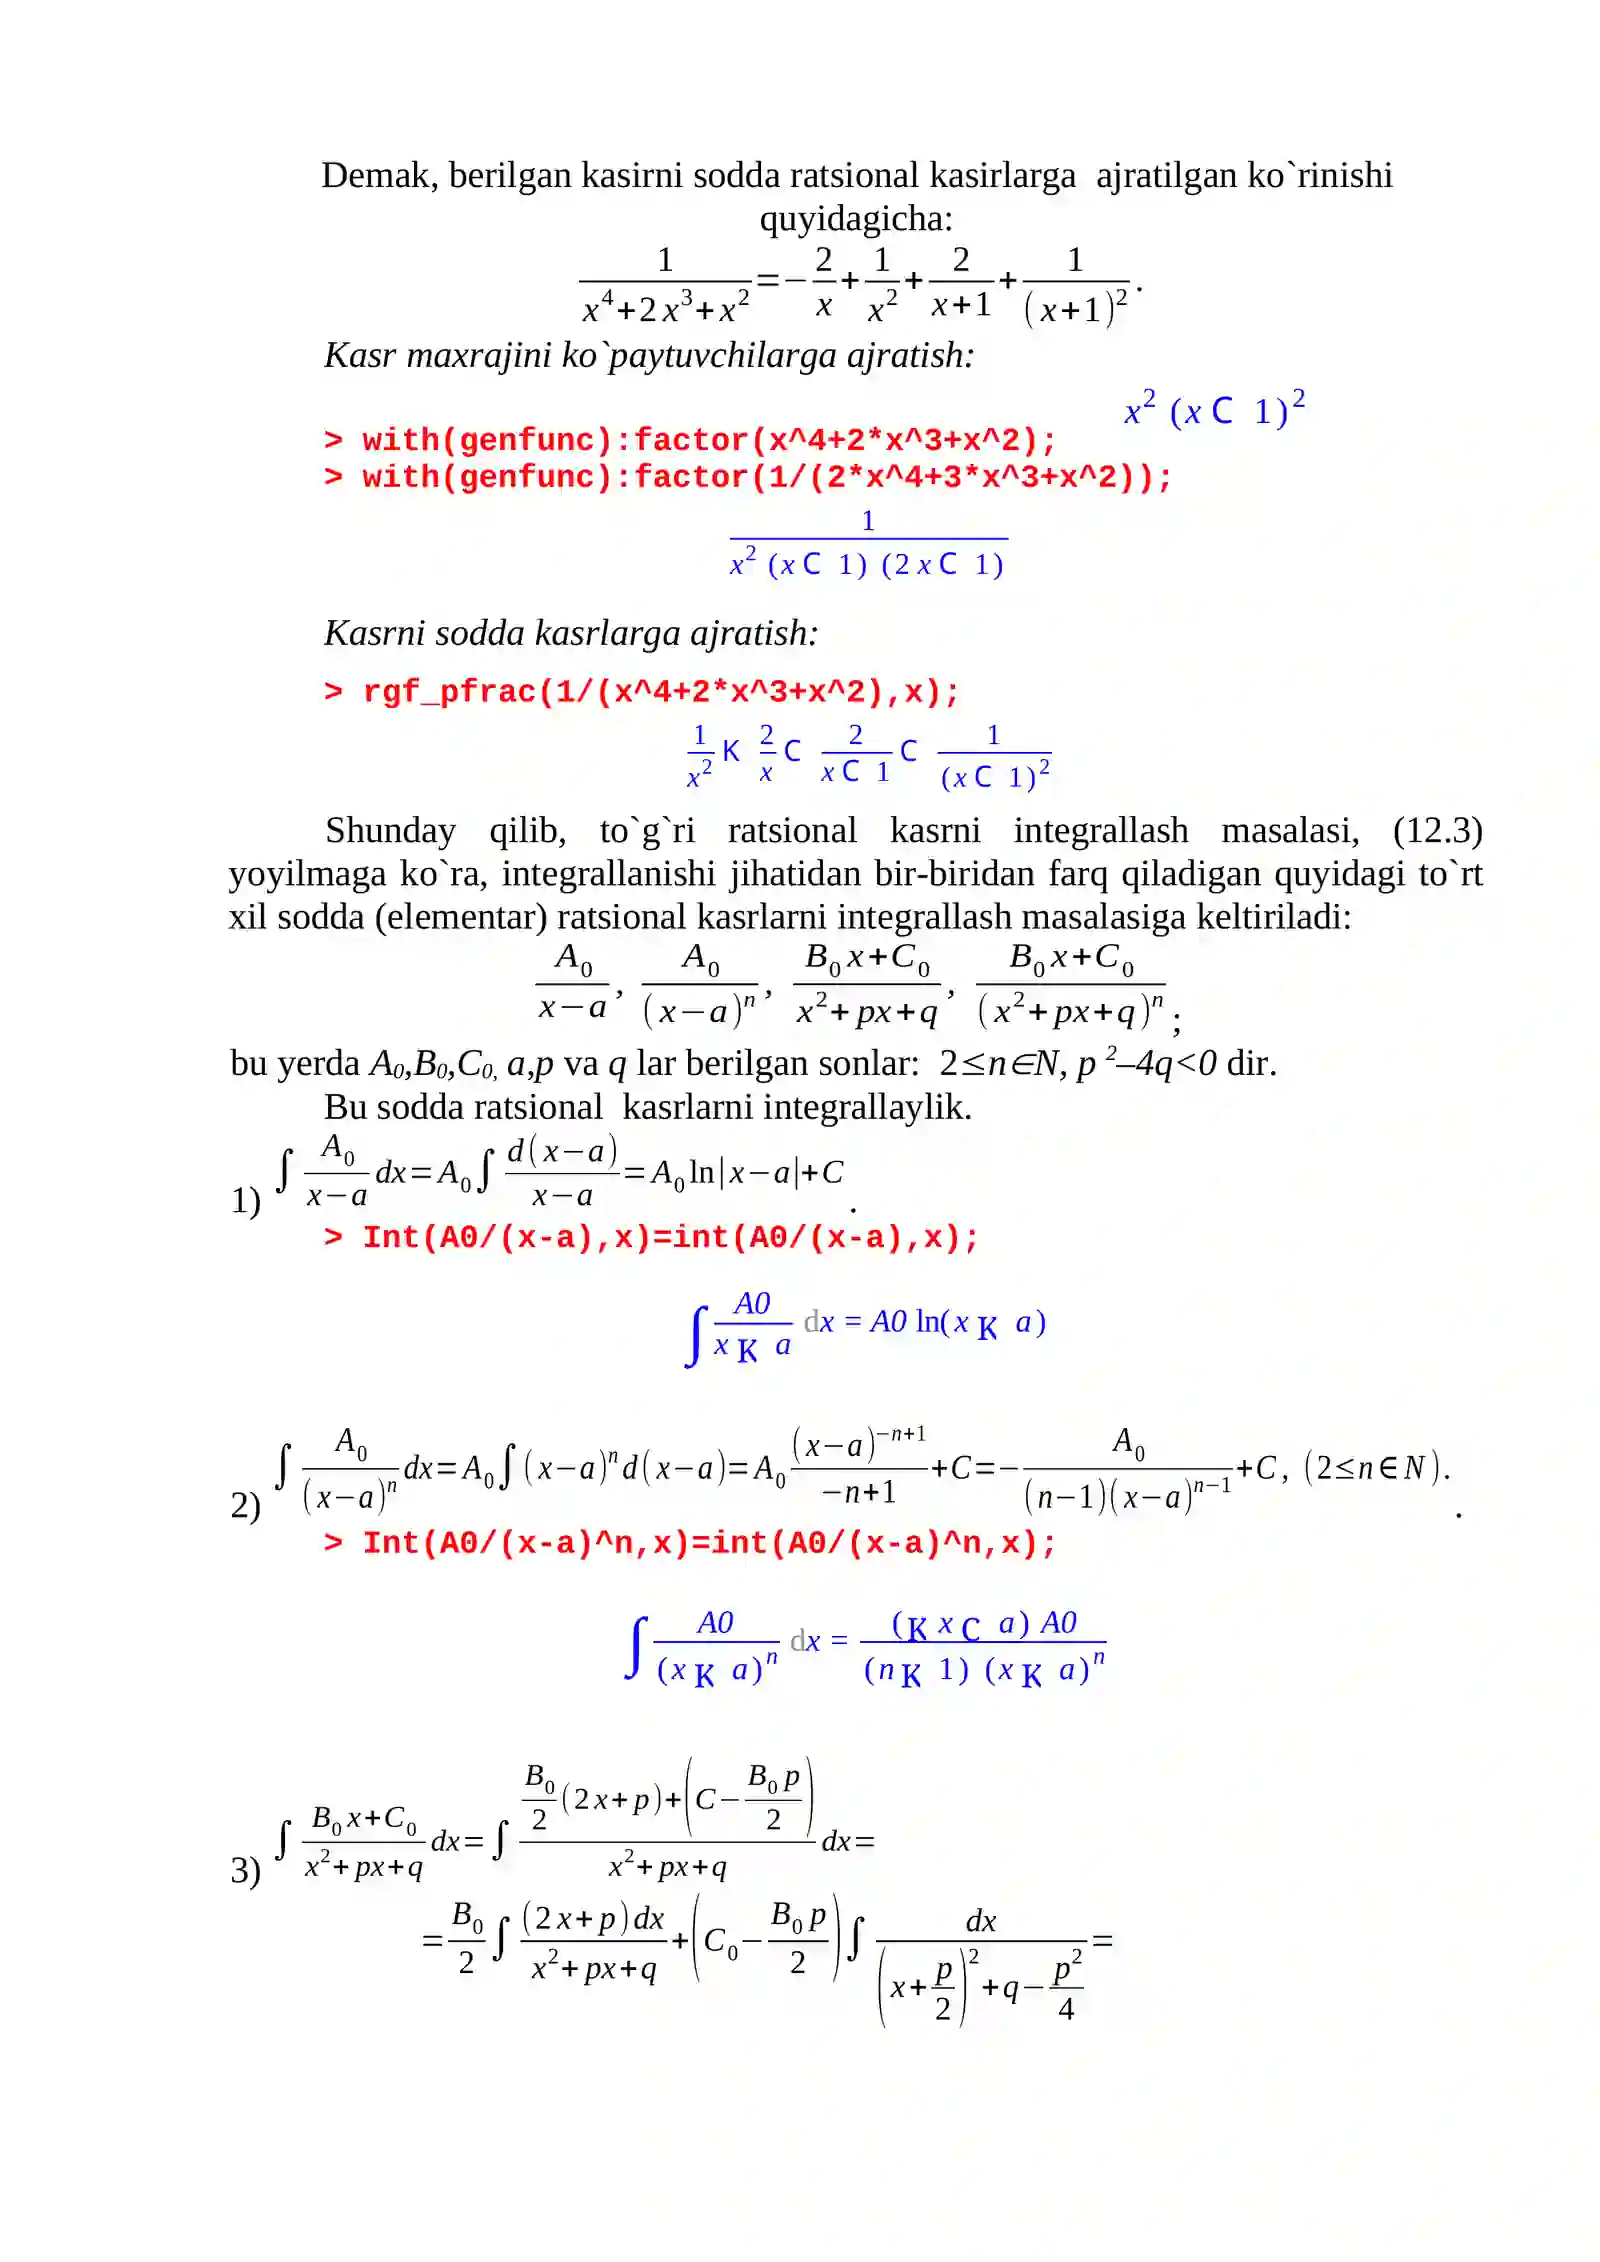 Demak, berilgan kasirni sodda ratsional kasirlarga ajratilgan ko`rinishi
quyidagicha:
\frac{1}{x^4+2x^3+x^2}=-\frac{2}{x}+\frac{1}{x^2}+\frac{2}{x+1}+\frac{1}{(x+1)^2}.
Kasr maxrajini ko`paytuvchilarga ajratish:
x^2 (x C 1)^2
> with(genfunc):factor(x^4+2*x^3+x^2);
> with(genfunc):factor(1/(2*x^4+3*x^3+x^2));
\frac{1}{x^2 (x C 1) (2 x C 1)}
Kasrni sodda kasrlarga ajratish:
> rgf_pfrac(1/(x^4+2*x^3+x^2),x);
\frac{1}{x^2} K \frac{2}{x} C \frac{2}{x C 1} C \frac{1}{(x C 1)^2}
Shunday qilib, to`g`ri ratsional kasrni integrallash masalasi, (12.3)
yoyilmaga ko`ra, integrallanishi jihatidan bir-biridan farq qiladigan quyidagi to`rt
xil sodda (elementar) ratsional kasrlarni integrallash masalasiga keltiriladi:
\frac{A_0}{x-a}, \frac{A_0}{(x-a)^n}, \frac{B_0 x+C_0}{x^2+px+q}, \frac{B_0 x+C_0}{(x^2+px+q)^n};
bu yerda A_0,B_0,C_0, a,p va q lar berilgan sonlar: 2≤n∈N, p^2–4q<0 dir.
Bu sodda ratsional kasrlarni integrallaylik.
1) ∫\frac{A_0}{x-a}dx=A_0∫\frac{d(x-a)}{x-a}=A_0 ln|x-a|+C.
> Int(A0/(x-a),x)=int(A0/(x-a),x);
∫\frac{A0}{x K a} dx = A0 ln(x K a)
2) ∫\frac{A_0}{(x-a)^n}dx=A_0∫(x-a)^n d(x-a)=A_0\frac{(x-a)^{-n+1}}{-n+1}+C=-\frac{A_0}{(n-1)(x-a)^{n-1}}+C, (2≤n∈N). .
> Int(A0/(x-a)^n,x)=int(A0/(x-a)^n,x);
∫\frac{A0}{(x K a)^n} dx = \frac{(K x C a) A0}{(n K 1) (x K a)^n}
3) ∫\frac{B_0 x+C_0}{x^2+px+q}dx=∫\frac{\frac{B_0}{2}(2x+p)+(C-\frac{B_0 p}{2})}{x^2+px+q}dx=
=\frac{B_0}{2}∫\frac{(2x+p)dx}{x^2+px+q}+(C_0-\frac{B_0 p}{2})∫\frac{dx}{(x+\frac{p}{2})^2+q-\frac{p^2}{4}}=